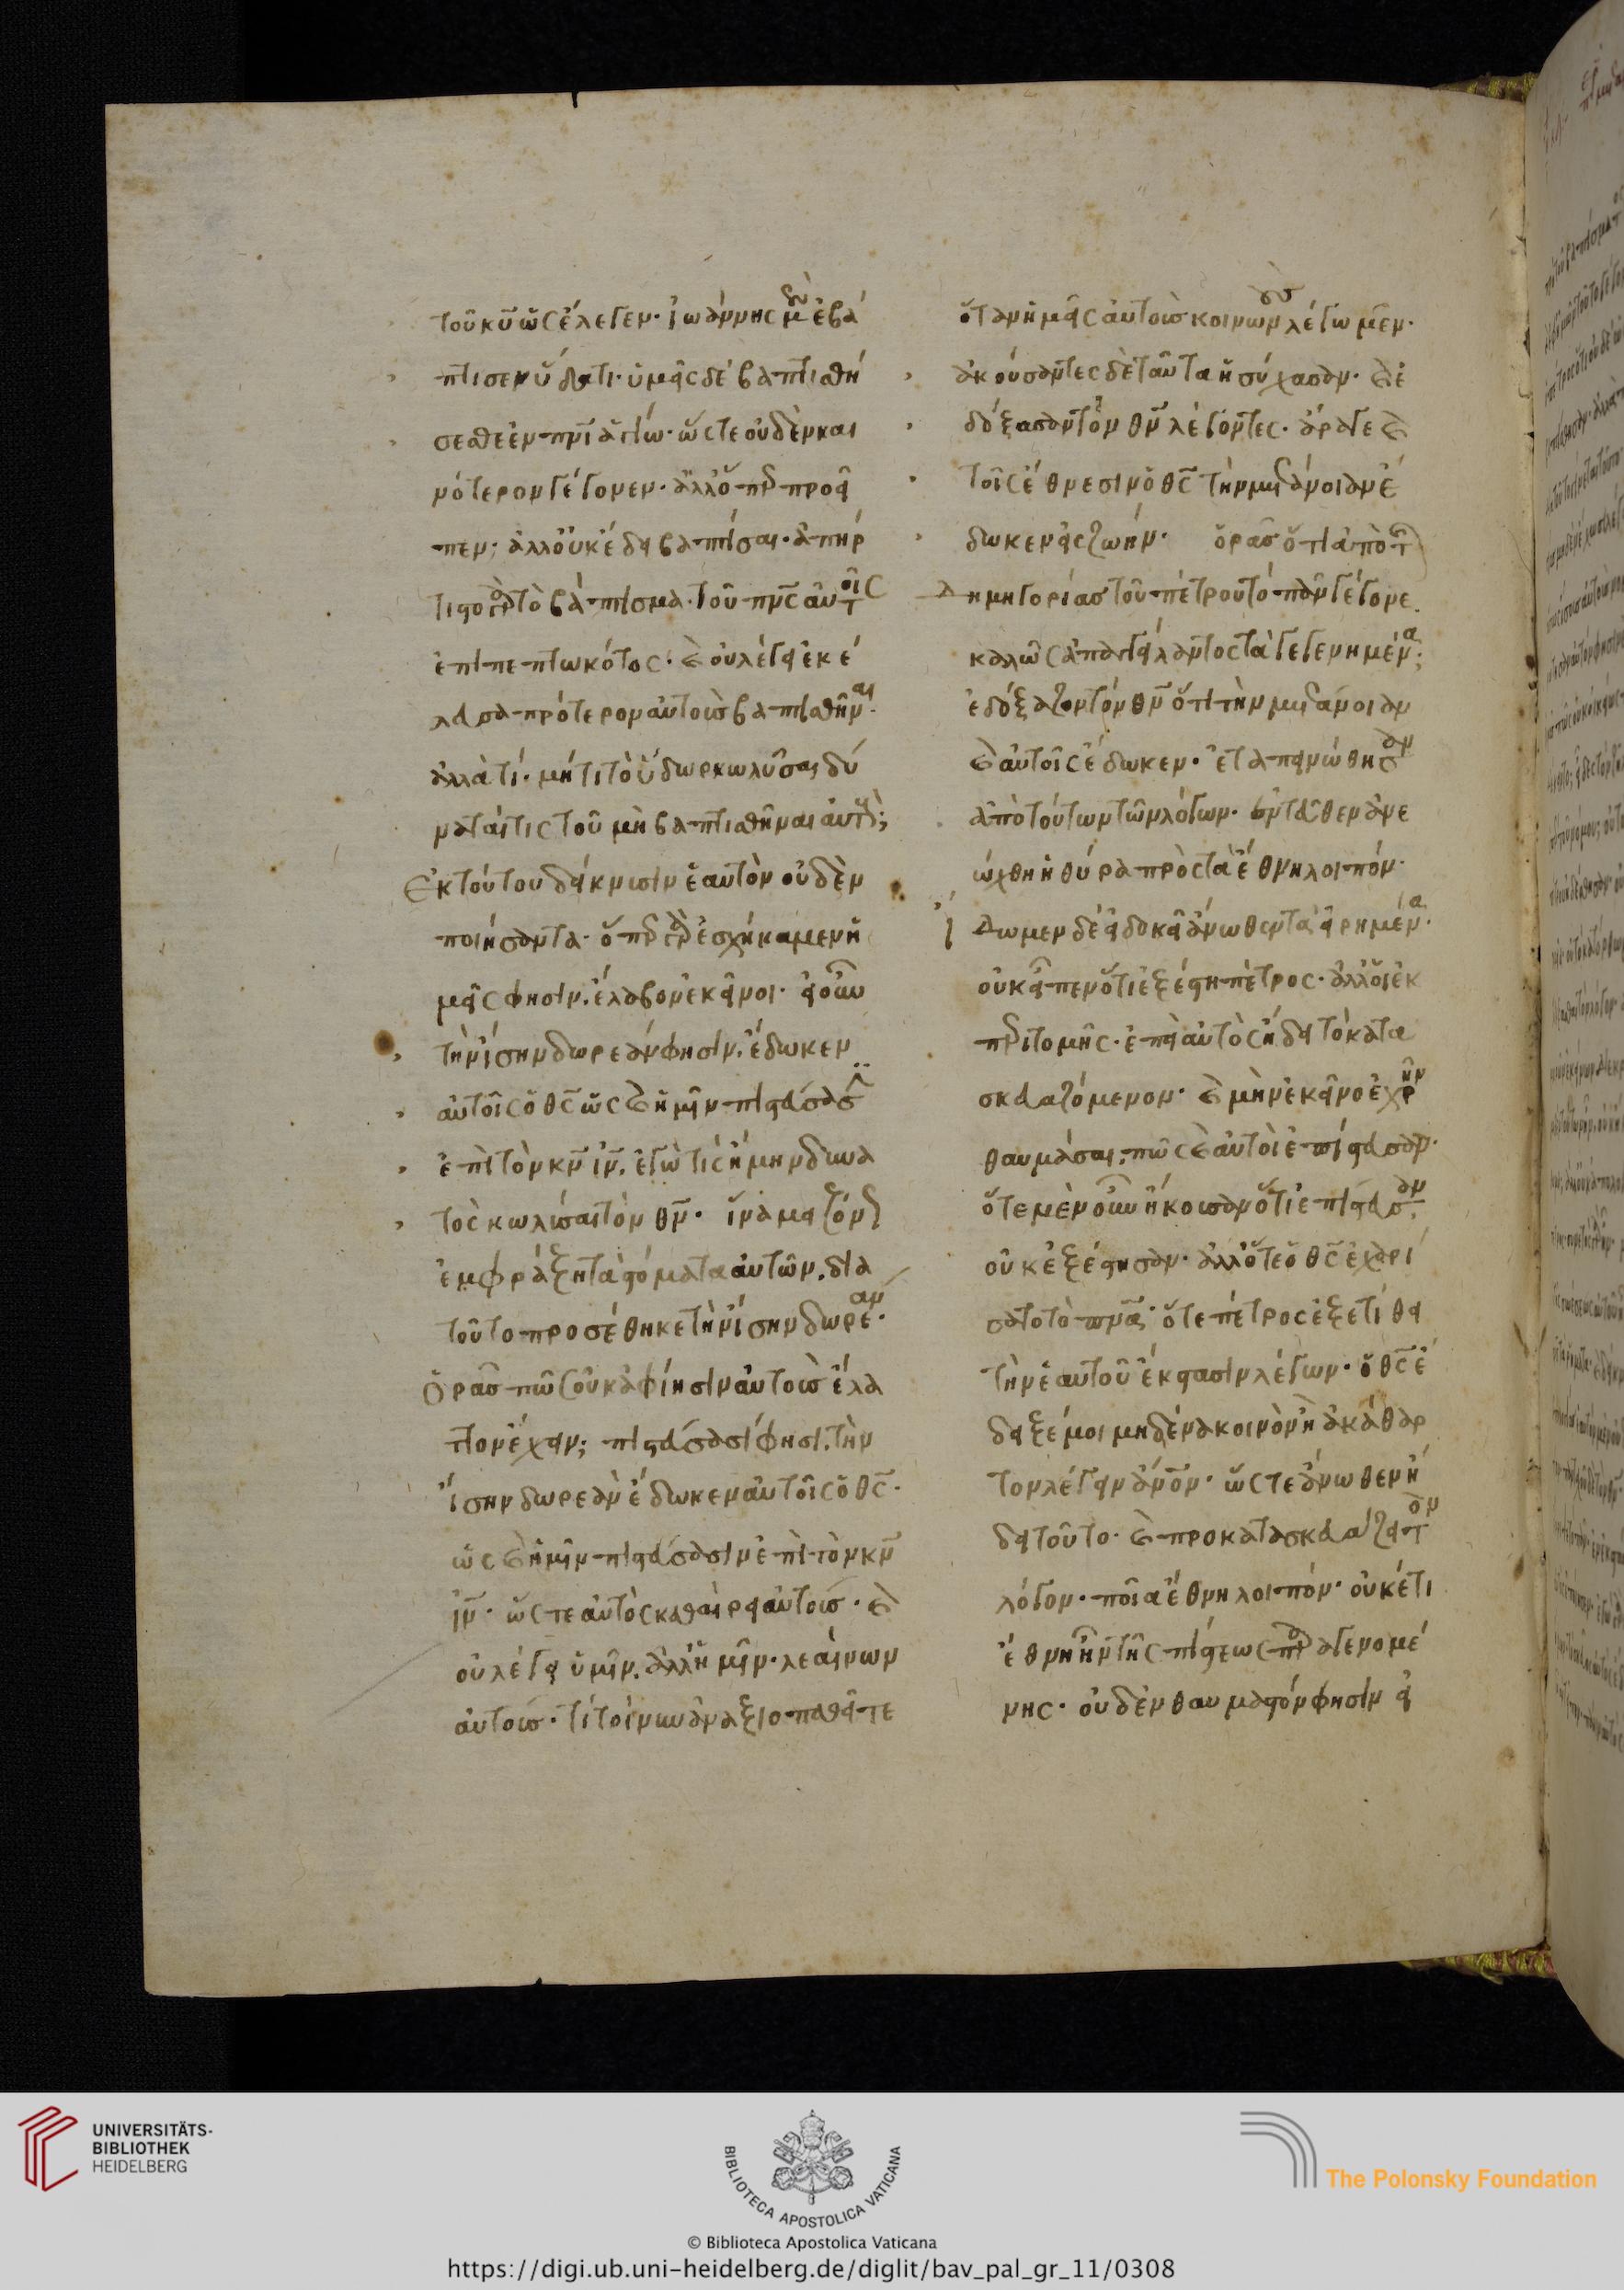 τοῦ κυ ὡς ἔλεγεν· ἰωάννης μὲν ἐβά
πτισεν ὕδατι· ὑμεῖς δὲ βαπτισθή
σεσθε ἐν πνι ἁγίω· ὥστε οὐδὲν και
νότερον γέγονεν· ἀλλ ὅπερ προεῖ
πεν; ἀλλ οὐκ ἔδει βαπτίσαι· ἀπήρ
τιστο τὸ βάπτισμα τοῦ πνς αὐτοῖς
ἐπιπεπτωκότος· καὶ οὐ λέγει ἐκέ
λευσα πρότερον αὐτοὺς βαπτισθῆναι·
ἀλλὰ τί· μήτι τὸ ὕδωρ κωλῦσαι δύ
ναταί τις τοῦ μὴ βαπτισθῆναι αὐτούς;
Ἐκ τούτου δείκνυσιν ἑαυτὸν οὐδὲν
ποιήσαντα· ὅπερ ἐσχήκαμεν ἡ
μεῖς φησιν. ἔλαβον ἐκεῖνοι· εἰ οὖν
τὴν ἴσην δωρεάν φησιν. ἔδωκεν
αὐτοῖς ὁ θς ὡς καὶ ἡμῖν πιστεύσασιν
ἐπὶ τὸν κν ιν. ἐγὼ τίς ἤμην δυνα
τὸς κωλύσαι τὸν θν· ἵνα μειζόνως
ἐμφράξη τὰ στόματα αὐτῶν. διὰ
τοῦτο προσέθηκε τὴν ἴσην δωρεάν·
ὁρᾶς πῶς οὐκ ἀφίησιν αὐτοὺς ἔλα
ττον ἔχειν; πιστεύσασί φησι. τὴν
ἴσην δωρεὰν ἔδωκεν αὐτοῖς ὁ θς·
ὡς καὶ ἡμῖν πιστεύσασιν ἐπὶ τὸν κν
ιν· ὥστε αὐτὸς καθαίρει αὐτούς· καὶ
οὐ λέγει ὑμῖν. ἀλλ ἡμῖν· λεαίνων
αὐτούς· τί τοίνυν ἀναξιοπαθεῖτε
ὅταν ἡμεῖς αὐτοὺς κοινωνοὺς λέγωμεν·
ἀκούσαντες δὲ ταῦτα ἡσύχασαν· καὶ ἐ
δόξασαν τὸν θν λέγοντες· ἄραγε καὶ
τοῖς ἔθνεσιν ὁ θς τὴν μετάνοιαν ἔ
δωκεν εἰς ζωήν· ὁρᾶς ὅτι ἀπὸ τῆς
δημηγορίας τοῦ πέτρου τὸ πᾶν γέγονε.
καλῶς ἀπαγγείλαντος τὰ γεγενημένα;
ἐδόξαζον τὸν θν ὅτι τὴν μετάνοιαν
καὶ αὐτοῖς ἔδωκεν· ἐταπεινώθησαν
ἀπὸ τούτων τῶν λόγων· ἐντεῦθεν ἀνε
ώχθη ἡ θύρα πρὸς τὰ ἔθνη λοιπόν·
ἴδωμεν δὲ εἰ δοκεῖ ἄνωθεν τὰ εἰρημένα·
οὐκ εἶπεν ὅτι ἐξέστη πέτρος· ἀλλ οἱ ἐκ
περιτομῆς· ἐπεὶ αὐτὸς ἤδει τὸ κατα
σκευαζόμενον· καὶ μὴν ἐκεῖνο ἐχρῆν
θαυμάσαι. πῶς καὶ αὐτοὶ ἐπίστευσαν·
ὅτε μὲν οὖν ἤκουσαν ὅτι ἐπίστευσαν.
οὐκ ἐξέστησαν· ἀλλ ὅτε ὁ θς ἐχαρί
σατο τὸ πνα· ὅτε πέτρος ἐξετίθει
τὴν ἑαυτοῦ ἔκστασιν λέγων· ὁ θς ἔ
δειξέ μοι μηδένα κοινὸν ἢ ἀκάθαρ
τον λέγειν ανον· ὥστε ἄνωθεν ἤ
δει τοῦτο· καὶ προκατασκευάζει τὸν
λόγον· ποῖα ἔθνη λοιπόν· οὐκέτι
ἔθνη ἦν τῆς πίστεως παραγενομέ
νης· οὐδὲν θαυμαστόν φησιν εἰ
UNIVERSITÄTS-
BIBLIOTHEK
HEIDELBERG
BIBLIOTECA APOSTOLICA VATICANA
© Biblioteca Apostolica Vaticana
The Polonsky Foundation
https://digi.ub.uni-heidelberg.de/diglit/bav_pal_gr_11/0308